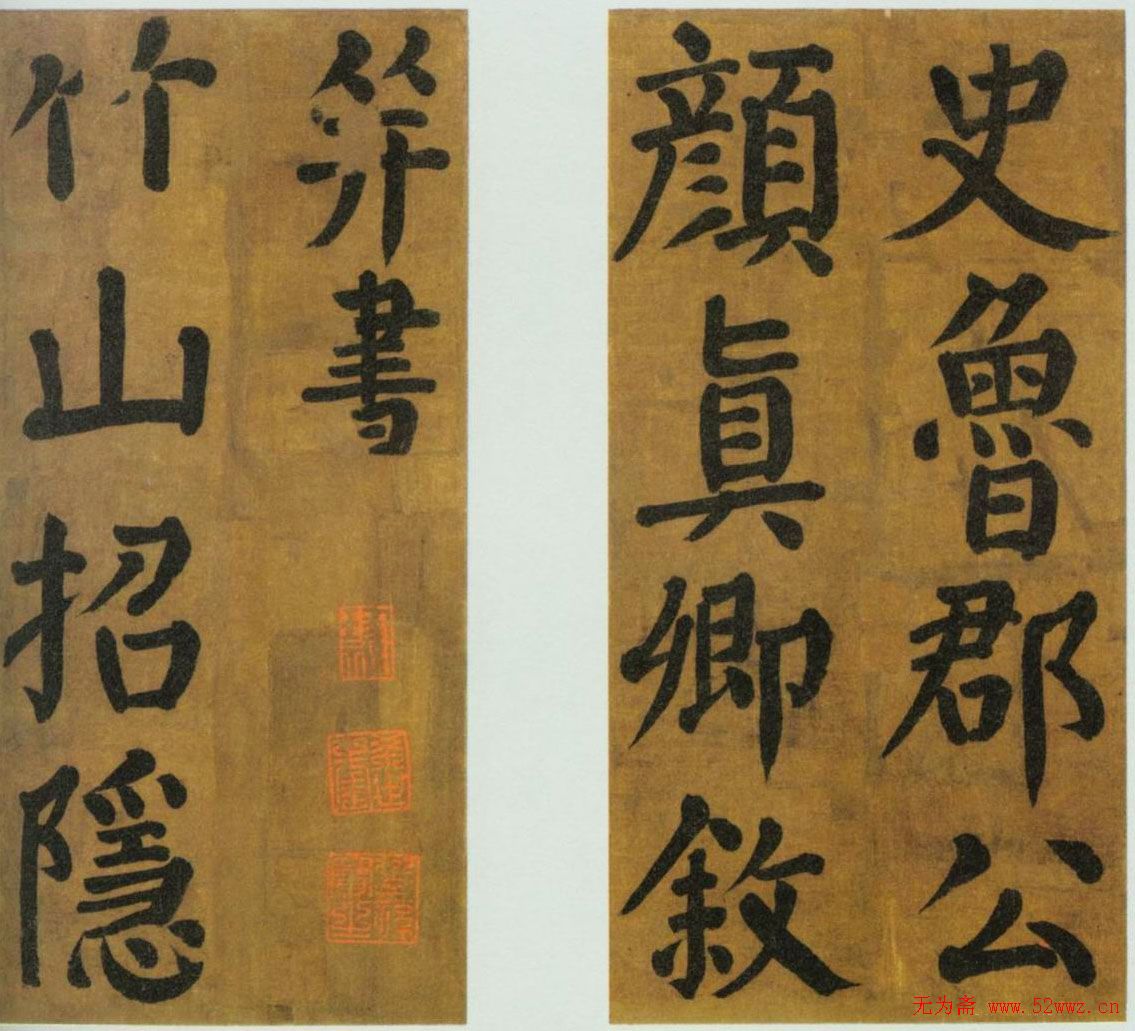 史魯郡公
顔眞卿敘
筭書
竹山招隱
无为斋 www.52wwz.cn